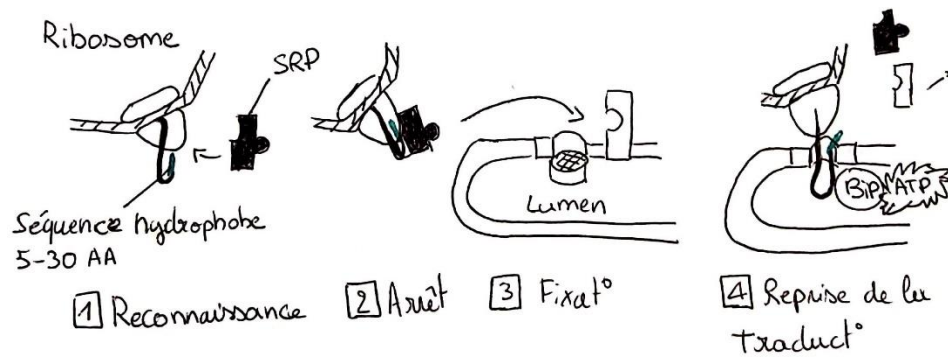 Ribosome
SRP
Séquence hydrophobe
5-30 AA
Lumen
BiP
ATP
1 Reconnaissance
2 Arrêt
3 Fixat°
4 Reprise de la
Traduct°